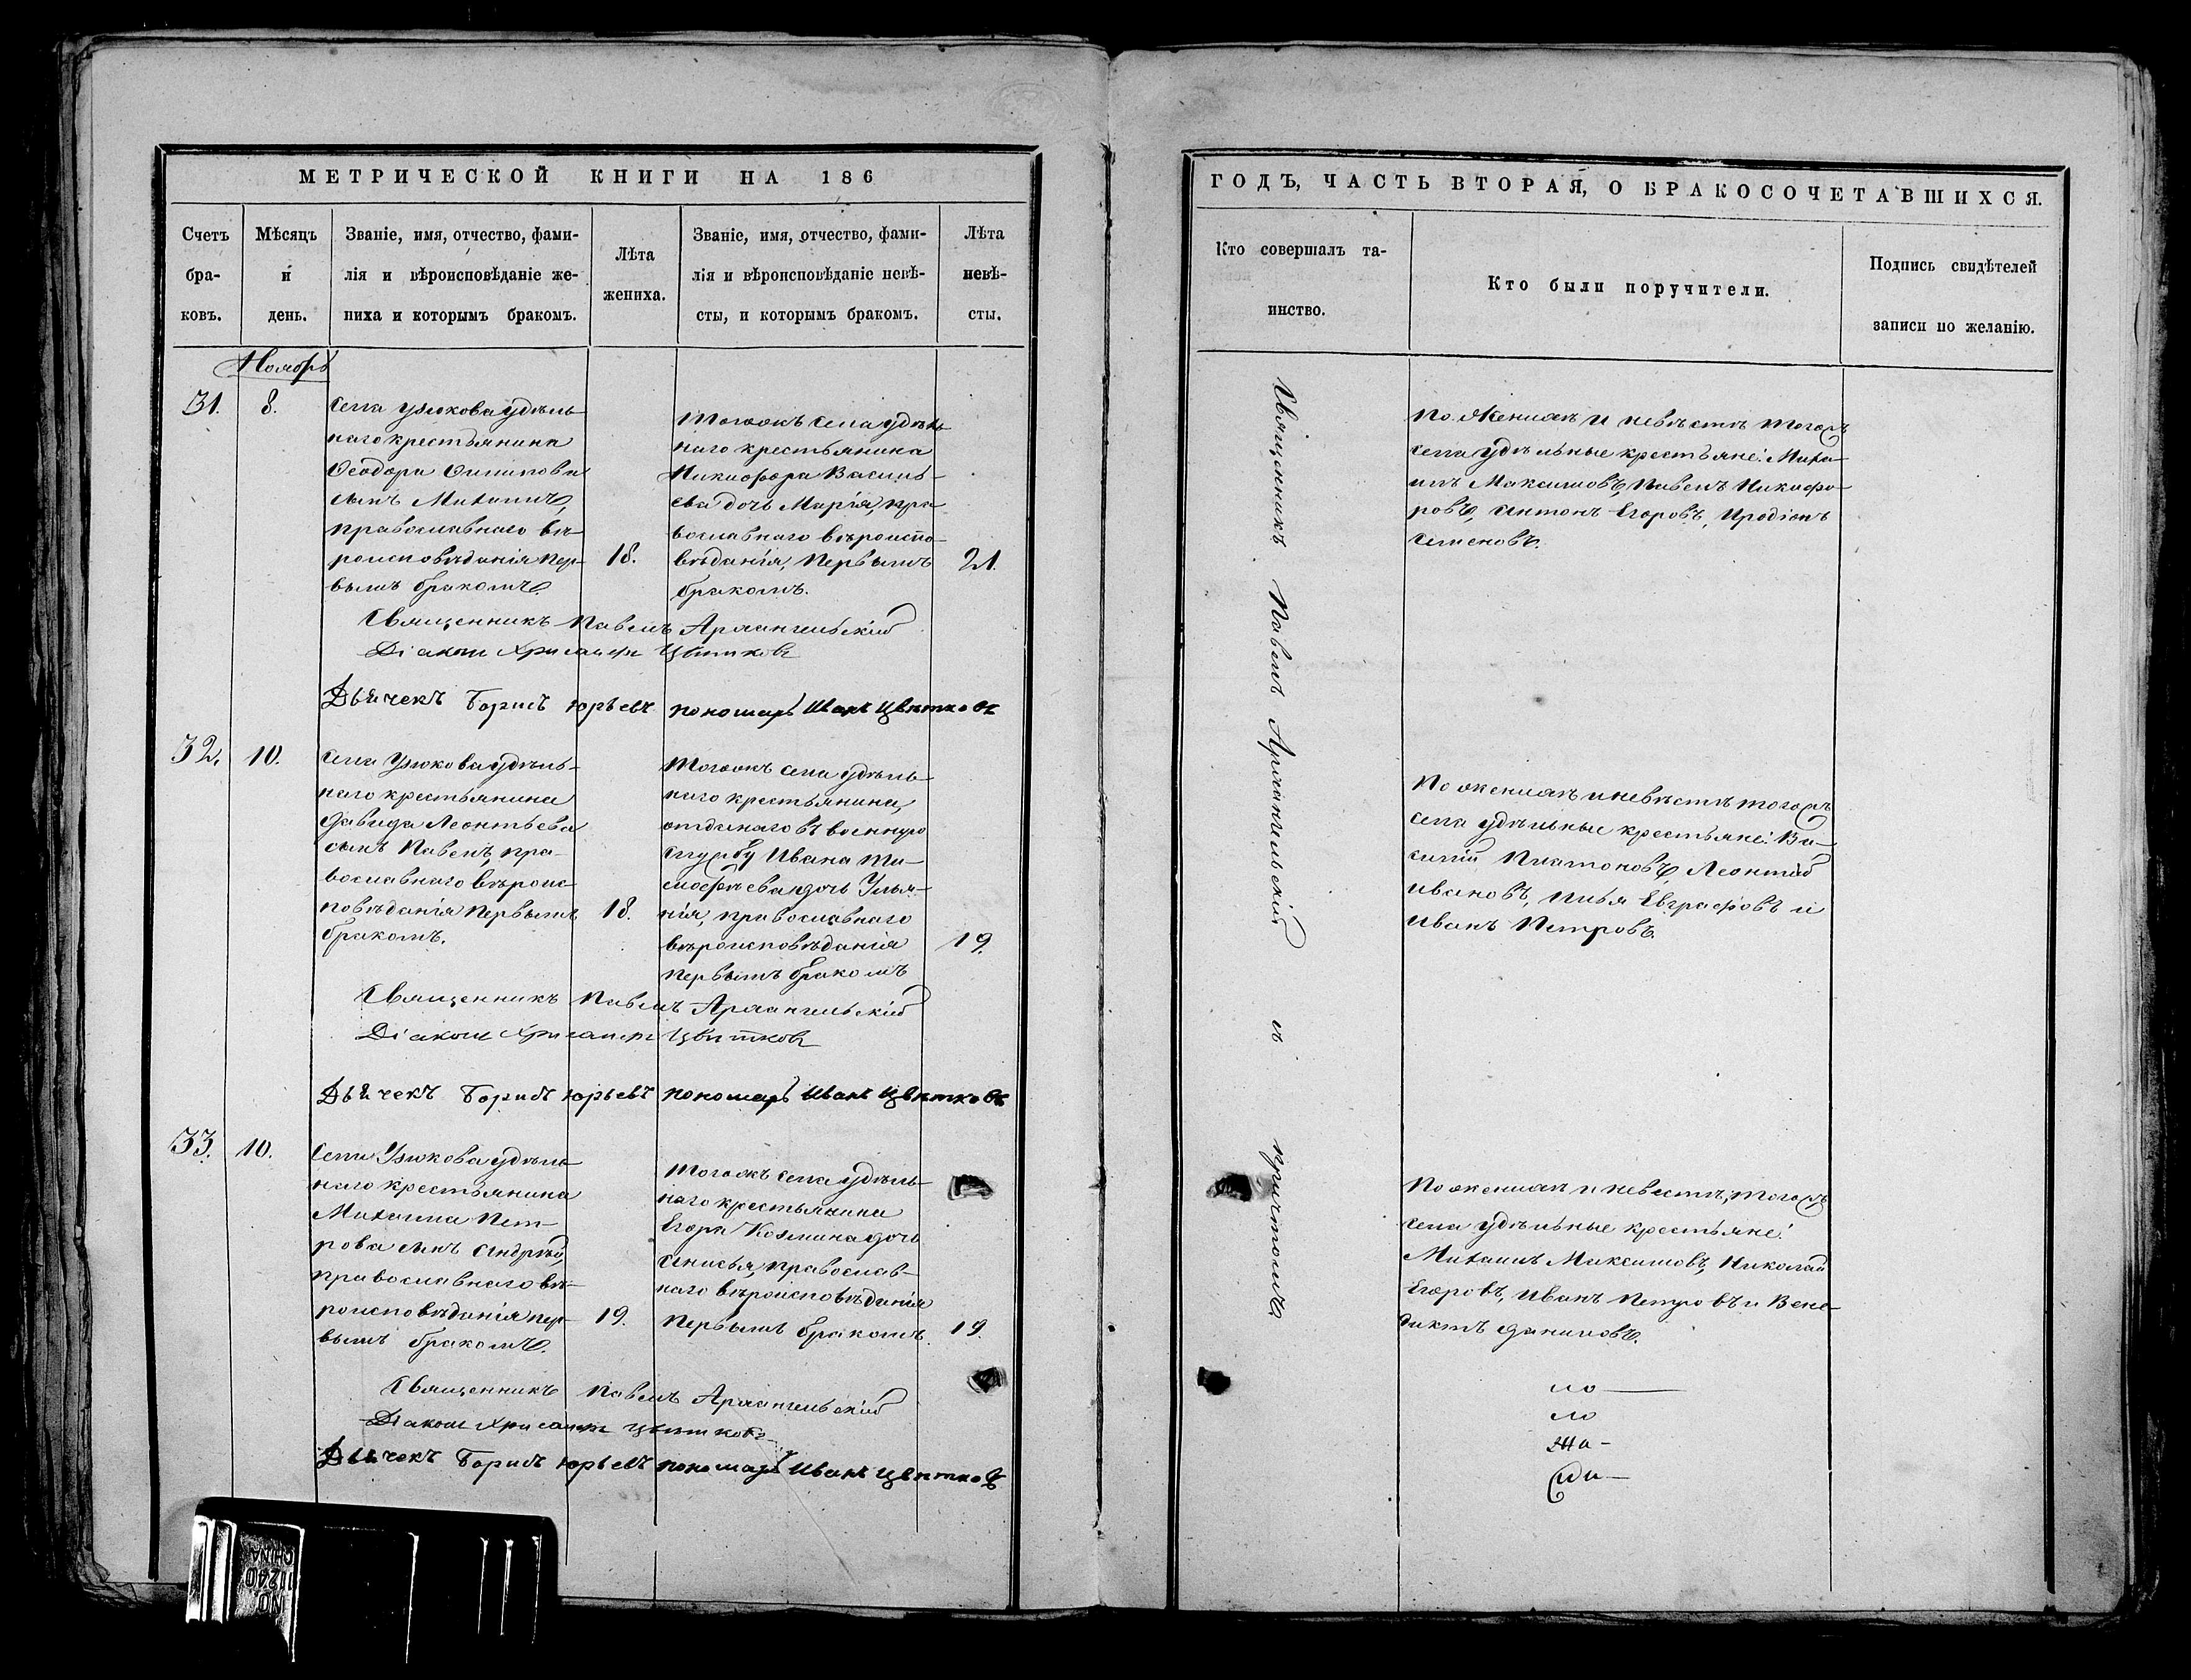 МЕТРИЧЕСКОЙ КНИГИ НА 186
Счетъ бра-ковъ.
Мѣсяцъ и день.
Званіе, имя, отчество, фами-
лія и вѣроисповѣданіе же-
ниха и которымъ бракомъ.
Лѣта жениха.
Званіе, имя, отчество, фами-
лія и вѣроисповѣданіе невѣ-
сты, и которымъ бракомъ.
Лѣта невѣ-сты.
Ноябрь
31.
8.
Села Узюкова удѣль-
наго крестьянина
Ѳеодора
сынъ Михаилъ,
православнаго вѣ-
роисповѣданія пер-
вымъ бракомъ.
18.
Тогожъ села удѣль
наго крестьянина
Никифора Василь-
ева дочь Марія, пра-
вославнаго вѣроиспо-
вѣданія, первымъ
бракомъ.
21.
Священникъ Павелъ Архангельскій
Діаконъ Хрисанфъ Цвѣтковъ
Дьячекъ Борисъ Юрьевъ пономарь Иванъ Цвѣтковъ
32.
10.
Села Узюкова удѣль-
наго крестьянина
Давида Леонтьева
сынъ Павелъ, пра-
вославнаго вѣроис-
повѣданія первымъ
бракомъ.
18.
Тогожъ села удѣль-
наго крестьянина,
отданаго въ военную
службу Ивана Ти-
мофѣева дочь Улья-
нія, православнаго
вѣроисповѣданія
первымъ бракомъ
19.
Священникъ Павелъ Архангельскій
Діаконъ Хрисанфъ Цвѣтковъ
Дьячекъ Борисъ Юрьевъ пономарь Иванъ Цвѣтковъ
33.
10.
Села Узюкова удѣль-
наго крестьянина
Михаила Пет-
рова сынъ Андрей,
православнаго вѣ-
роисповѣданія пер-
вымъ бракомъ.
19.
Тогожъ села удѣль-
наго крестьянина
Егора Козмина дочь
Анисья, православ-
наго вѣроисповѣданія
первымъ бракомъ.
19.
Священникъ Павелъ Архангельскій
Діаконъ Хрисанфъ Цвѣтковъ
Дьячекъ Борисъ Юрьевъ пономарь Иванъ Цвѣтковъ
NO
11240
CHINA
ГОДЪ, ЧАСТЬ ВТОРАЯ, О БРАКОСОЧЕТАВШИХСЯ.
Кто совершалъ та-
инство.
Кто были поручители.
Подпись свидѣтелей
записи по желанію.
Священникъ Павелъ Архангельскій съ причтомъ
По женихѣ и невѣстѣ тогожъ
села удѣльные крестьяне: Миха-
илъ Максимовъ, Павелъ Никифо-
ровъ, Антонъ Егоровъ, Иродіонъ
Семеновъ.
По женихѣ и невѣстѣ тогожъ
села удѣльные крестьяне: Ва-
силій Платоновъ, Леонтій
Ивановъ, Илья Евграфовъ и
Иванъ Петровъ.
По женихѣ и невѣстѣ, тогожъ
села удѣльные крестьяне:
Михаилъ Максимовъ, Николай
Егоровъ, Иванъ Петровъ и Вене-
диктъ Даниловъ.